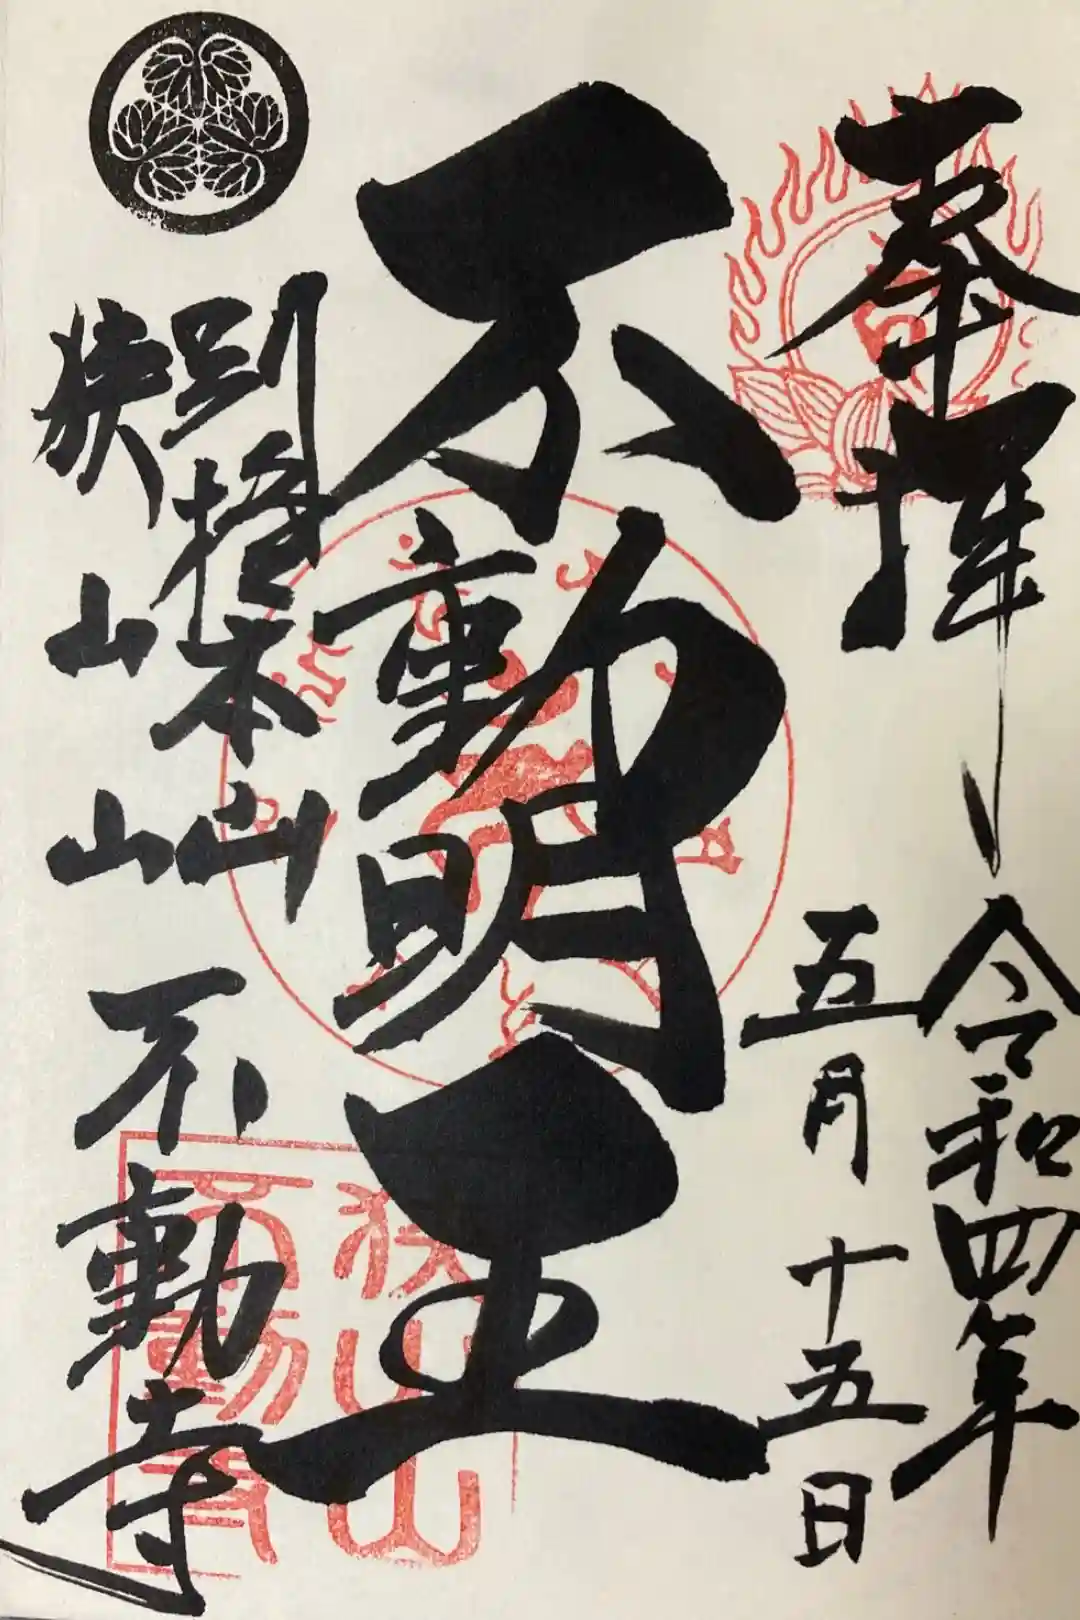 奉拝
令和四年
五月十五日
不動明王
別格本山
狭山山
不動寺
狭山
不動寺